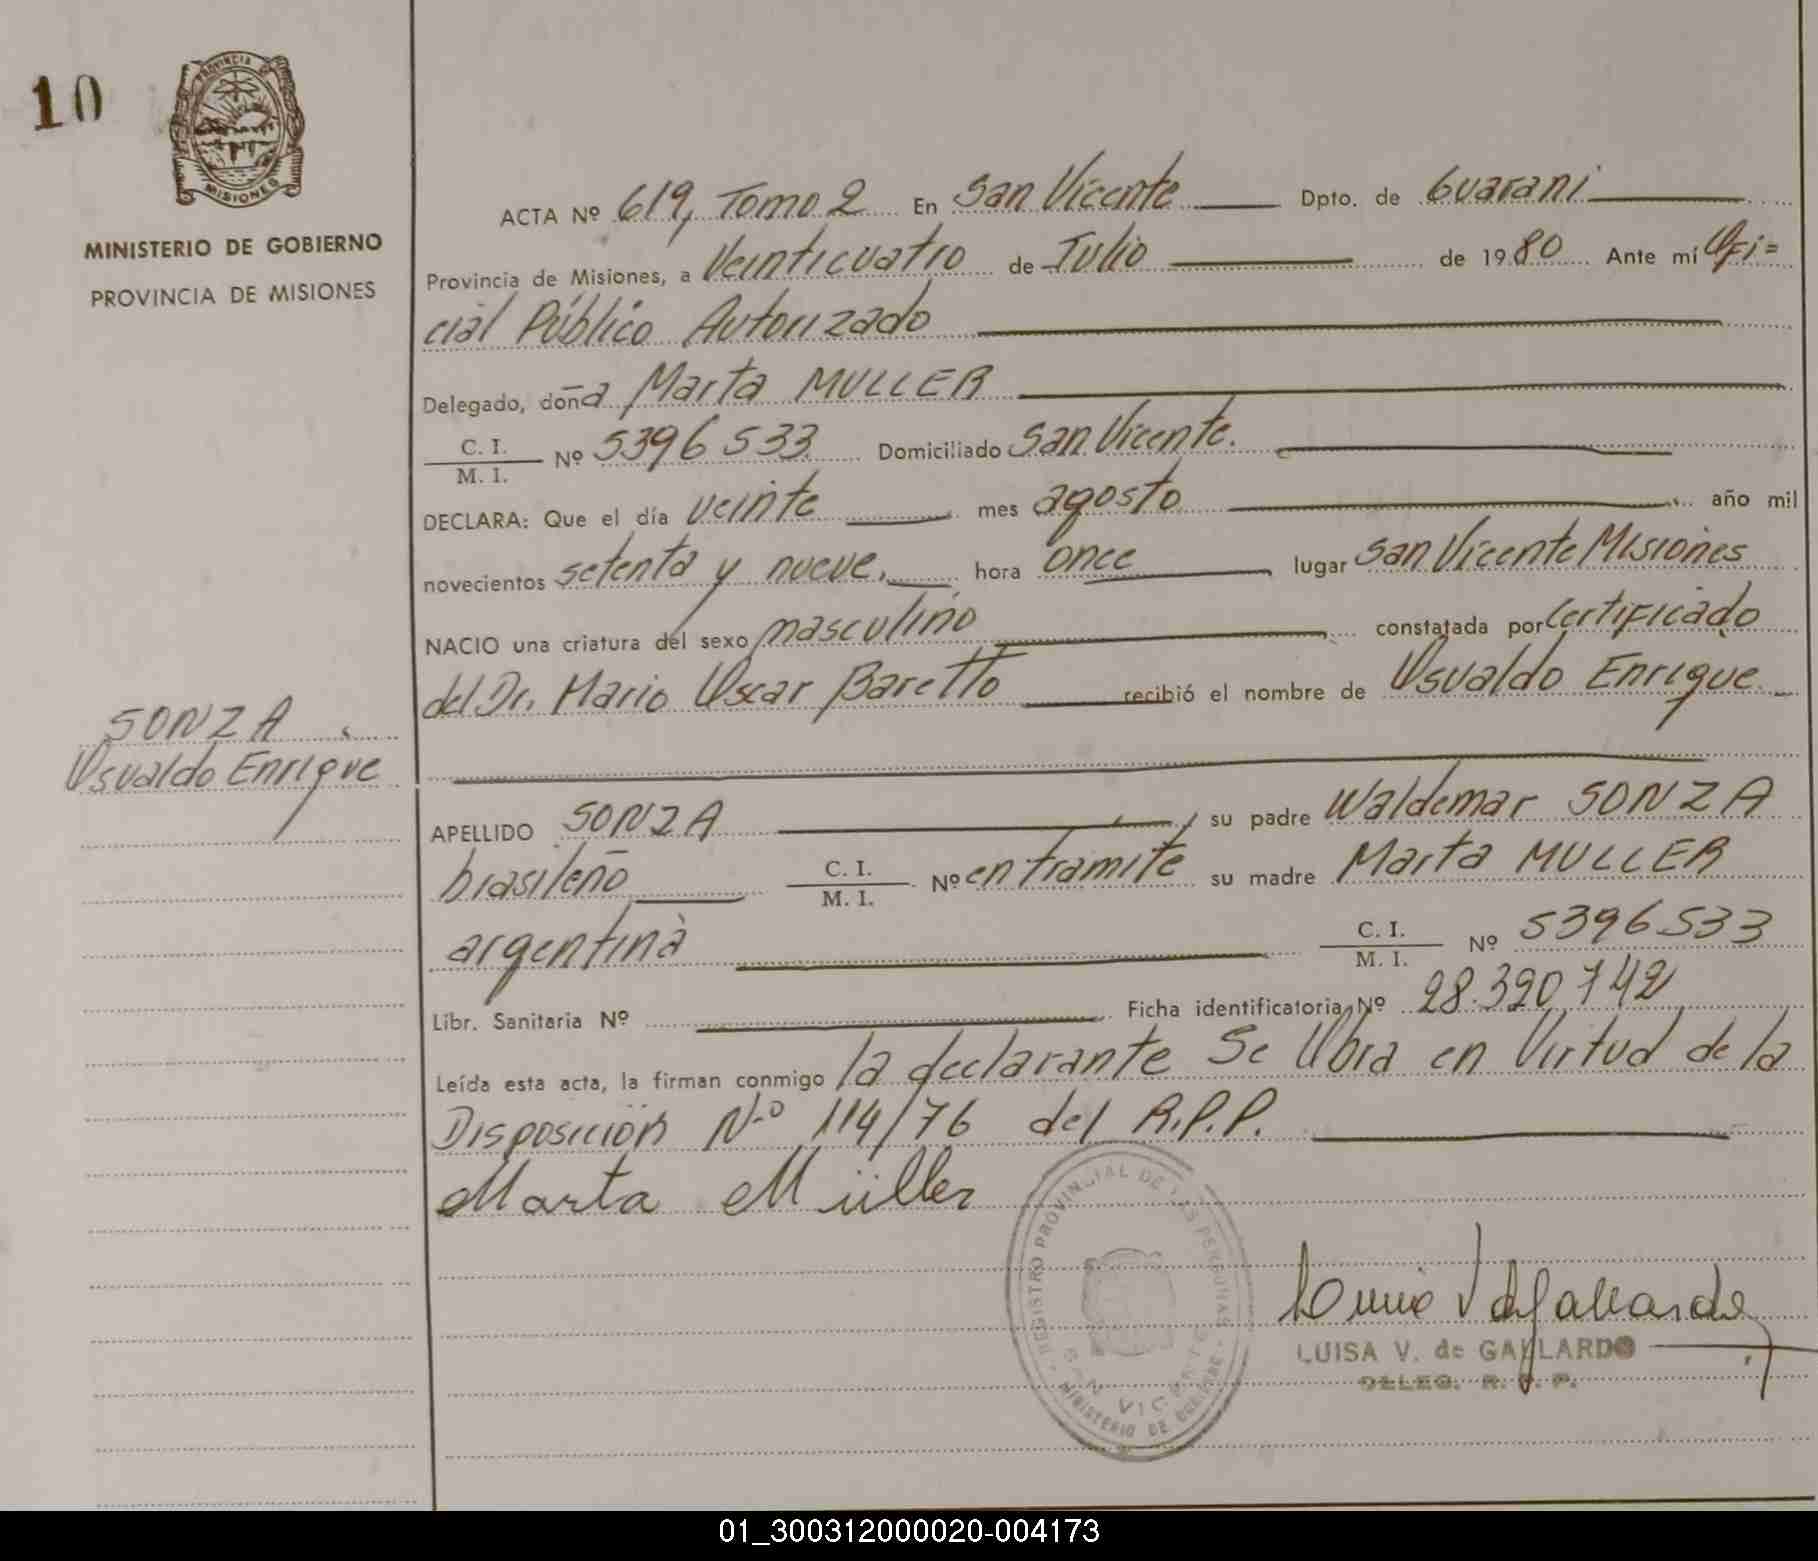 10
PROVINCIA
MISIONES
MINISTERIO DE GOBIERNO
PROVINCIA DE MISIONES
ACTA Nº 619, Tomo 2 En San Vicente Dpto. de Guarani
Provincia de Misiones, a Veinticuatro de Julio de 1980 Ante mí Ofi=
cial Público Autorizado
Delegado, doña Marta MULLER
C. I.
M. I. Nº 5396533 Domiciliado San Vicente.
DECLARA: Que el día veinte mes agosto año mil
novecientos setenta y nueve, hora once lugar San Vicente Misiones
NACIO una criatura del sexo masculino constatada por Certificado
del Dr. Mario Oscar Baretto recibió el nombre de Osvaldo Enrique
SONZA
Osvaldo Enrique
APELLIDO SONZA su padre Waldemar SONZA
brasileño C. I.
M. I. Nº en tramite su madre Marta MULLER
argentina C. I.
M. I. Nº 5396533
Libr. Sanitaria Nº Ficha identificatoria Nº 28.320.742
Leída esta acta, la firman conmigo la declarante Se Obra en Virtud de la
Disposición Nº 114/76 del R.P.P.
Marta Müller
REGISTRO PROVINCIAL DE LAS PERSONAS
SAN VICENTE
MINISTERIO DE GOBIERNO
Luisa V de Gallardo
LUISA V. de GALLARDO
DELEG. R. P. P.
01_300312000020-004173